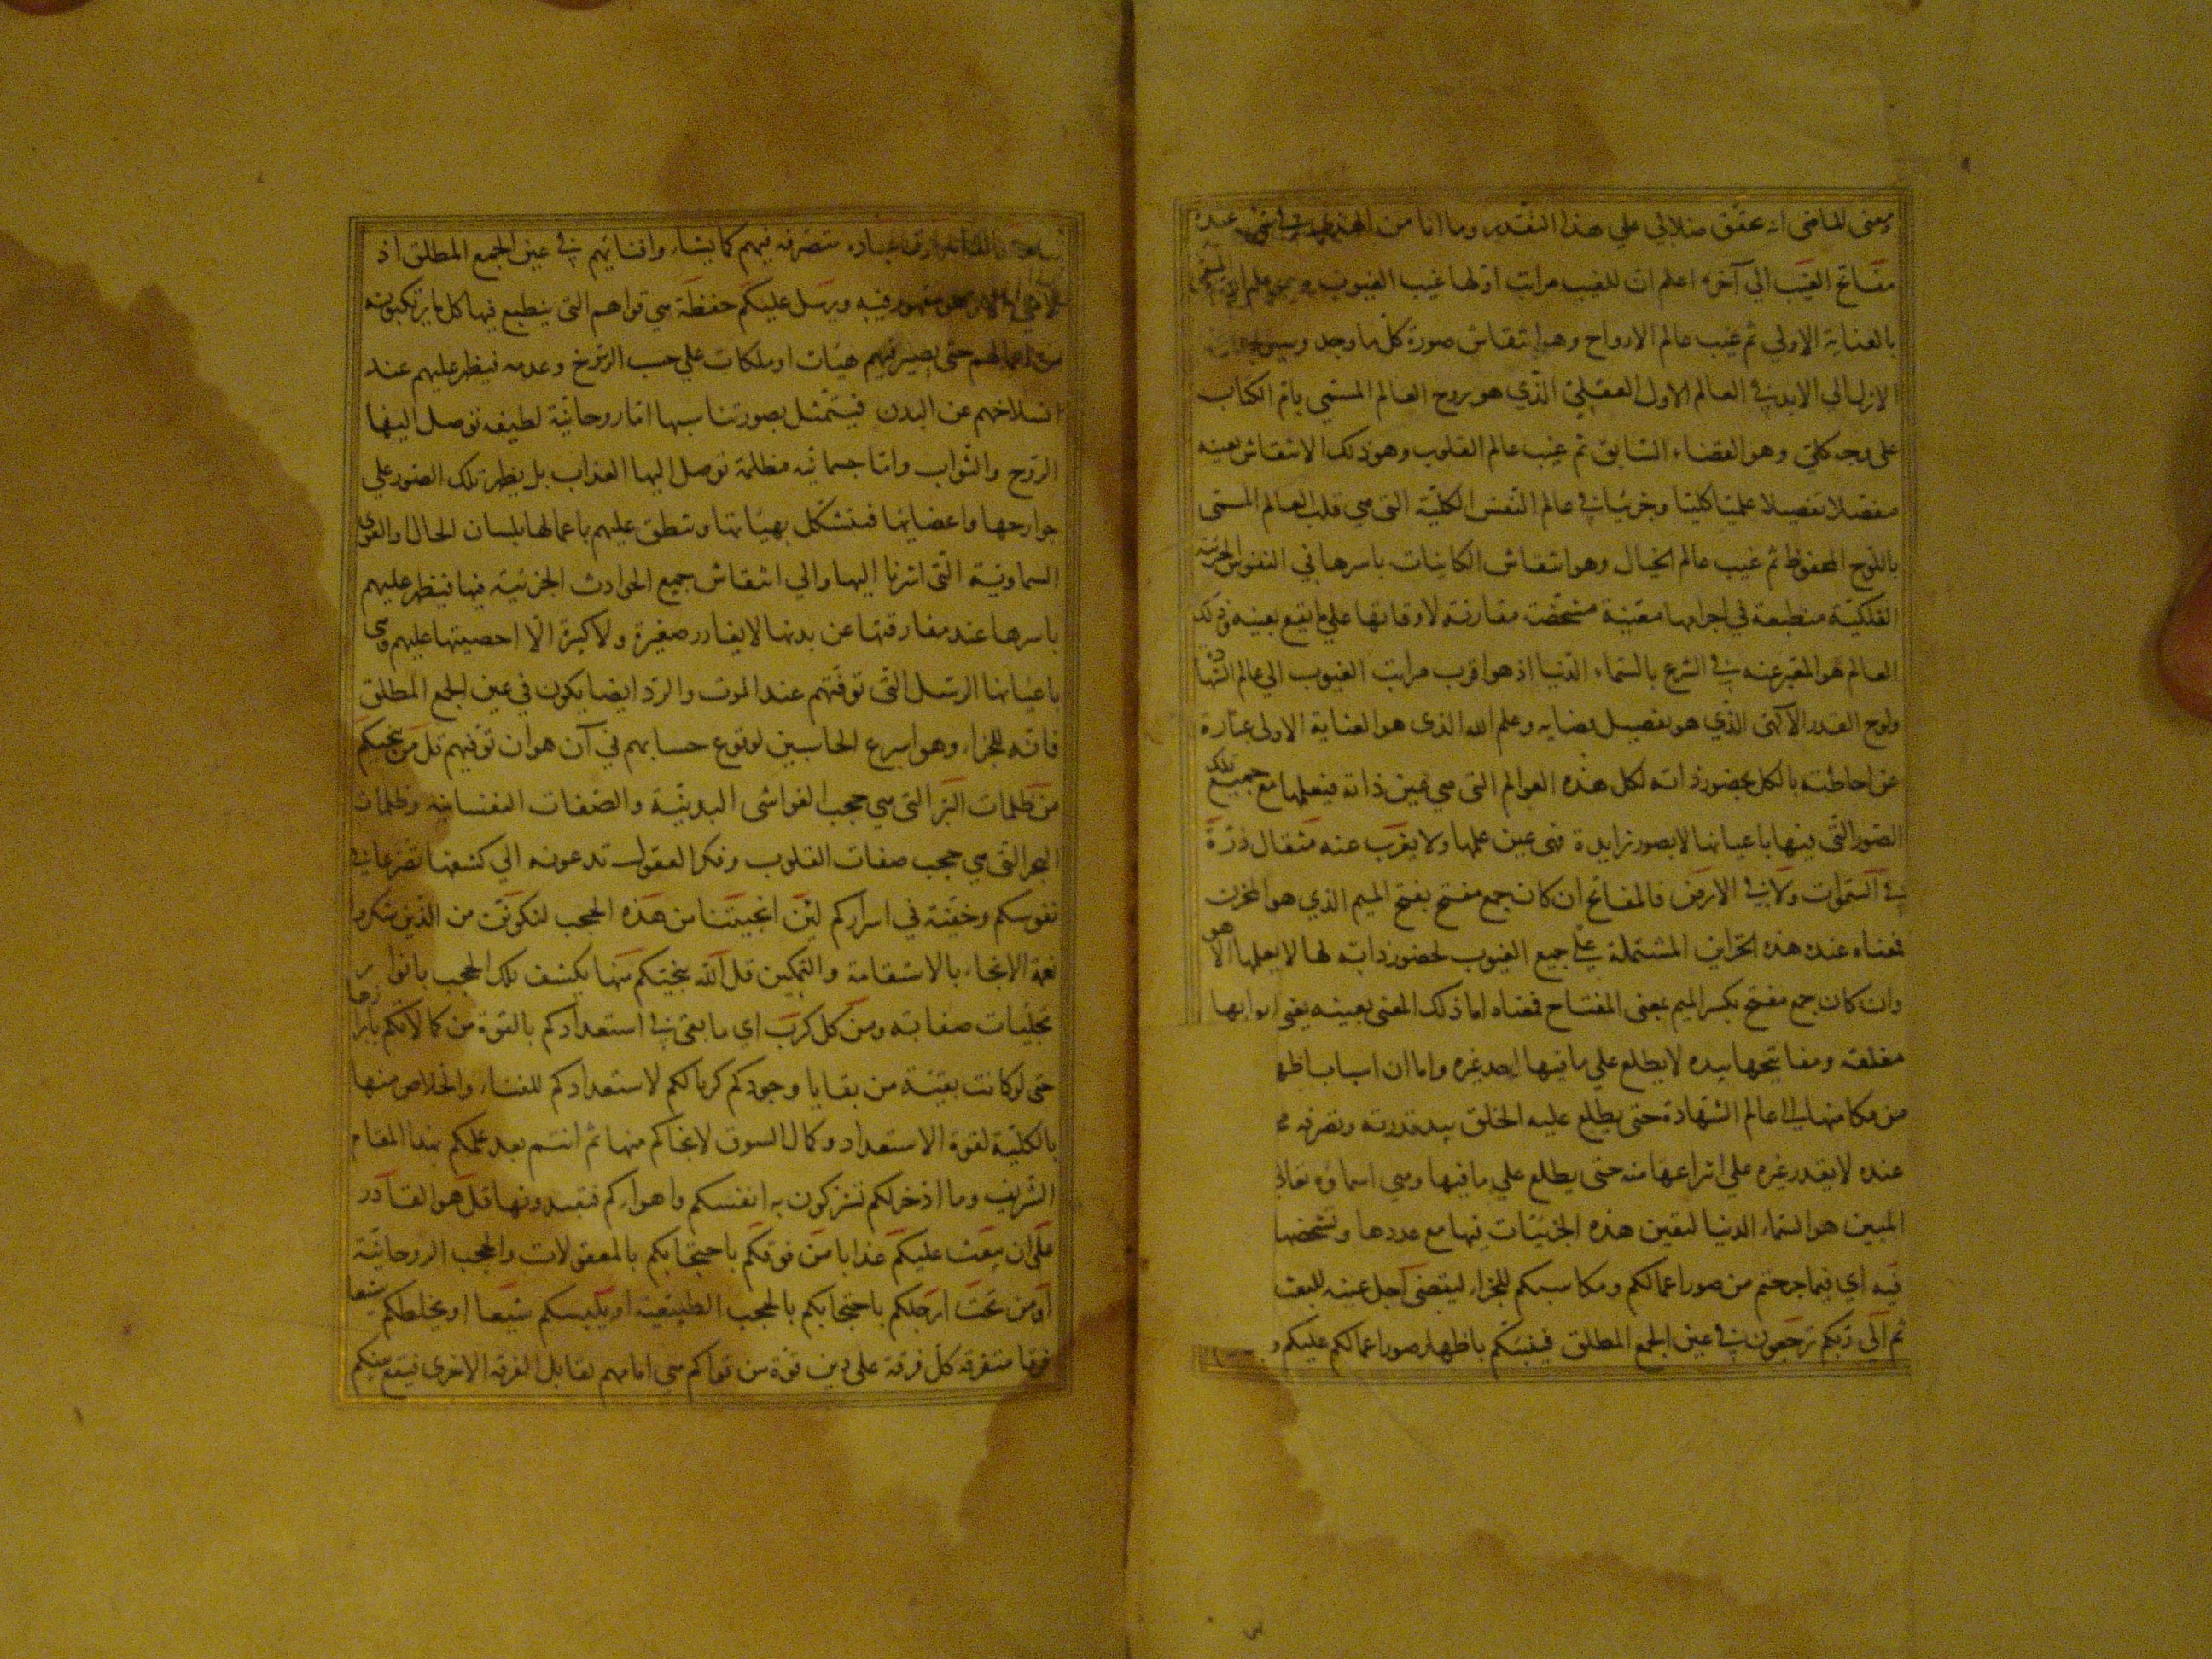 بمعنى الماضى انه تحقق ضلالي علي هذا التقدير وما انا من المهتدين في شئ عنده
مفاتح الغيب الي آخره اعلم ان للغيب مراتب اولها غيب الغيوب وهو علم الله المسمى
بالعناية الاولي ثم غيب عالم الارواح وهو انتقاش صورة كل ما وجد وسيوجد من
الازل الي الابد في العالم الاول العقلي الذي هو روح العالم المسمى بام الكتاب
على وجه كلي وهو القضاء السابق ثم غيب عالم القلوب وهو ذلك الانتقاش بعينه
مفصلا تفصيلا علميا كليا وجزئيا في عالم النفس الكلية التى هي قلب العالم المسمى
باللوح المحفوظ ثم غيب عالم الخيال وهو انتقاش الكاينات باسرها في النفوس الجزئية
الفلكية منطبعة في اجرامها معينة مشخصة مقارنة لاوقاتها علي ما يقع بعينه وذلك
العالم هو المعبر عنه في الشرع بالسماء الدنيا اذ هو اقرب مراتب الغيوب الي عالم الشهادة
ولوح القدر الآلهى الذي هو تفصيل قضايه وعلم الله الذى هو العناية الاولى عبارة
عن احاطته بالكل بحضور ذاته لكل هذه العوالم التى هي عين ذاته فيعلمها مع جميع تلك
الصور التى فيها باعيانها لا بصور زايدة فهى عين علمها ولا يعزب عنه مثقال ذرة
في السموات ولا في الارض فالمفاتح ان كان جمع مفتح بفتح الميم الذي هو المخزن
فمعناه عنده هذه الخزاين المشتملة على جميع الغيوب لحضور ذاته لها لا يعلمها الا هو
وان كان جمع مفتح بكسر الميم بمعنى المفتاح فمعناه اما ذلك المعنى بعينه يعنى ابوابها
مغلقة ومفاتيحها بيده لا يطلع علي ما فيها احد غيره واما ان اسباب اظها
من مكامنها الى عالم الشهادة حتى يطلع عليه الخلق بيد قدرته وتصرفه مح
عنده لا يقدر غيره علي انتزاعها منه حتى يطلع علي ما فيها وهي اسماؤه تعالى
المبين هو السماء الدنيا لتعين هذه الجزئيات فيها مع عددها وتشخصها
فيه اي فيما جرحتم من صور اعمالكم ومكاسبكم للجزاء ليقضى اجل عينه للبعث
ثم الي ربكم ترجعون في عين الجمع المطلق فينبئكم باظهار صور اعمالكم عليكم و
عباده يتصرف فيهم كما يشاء وافنائهم في عين الجمع المطلق اذ
مقهور فيه ويرسل عليكم حفظة هي قواهم التى ينطبع فيها كل ما يرتكبونه
من اعمالهم حتى يصير فيهم هيئات او ملكات علي حسب الرسوخ وعدمه فيظهر عليهم عند
انسلاخهم عن البدن فيتمثل بصور تناسبها اما روحانية لطيفة توصل اليها
الروح والثواب واما جسمانيه مظلمة توصل اليها العذاب بل يظهر تلك الصور علي
جوارحها واعضائها فيتشكل بهيئاتها وتنطق عليهم باعمالها بلسان الحال والقوى
السماوية التى اشرنا اليها والي انتقاش جميع الحوادث الجزئية فيها فيظهر عليهم
باسرها عند مفارقتها عن بدنها لا يغادر صغيرة ولا كبيرة الا احصيتها عليهم وهى
باعيانها الرسل التى توفيهم عند الموت والرد ايضا يكون في عين الجمع المطلق
فانه للجزاء وهو اسرع الحاسبين لوقوع حسابهم في آن هو ان توفيهم قل من ينجيكم
من ظلمات البر التى هي حجب الغواشى البدنية والصفات النفسانيه وظلمات
البحر التى هي حجب صفات القلوب وفكر العقول تدعونه الي كشفها تضرعا في
نفوسكم وخفية في اسراركم لئن انجيتنا من هذه الحجب لنكونن من الذين شكروا
نعمة الانجاء بالاستقامة والتمكين قل الله ينجيكم منها بكشف تلك الحجب بانوار
تجليات صفاته ومن كل كرب اي ما بقى في استعدادكم بالقوة من كمالاتكم بابرازها
حتى لو كانت بقية من بقايا وجودكم كربا لكم لاستعدادكم للفناء والخلاص منها
بالكلية لقوة الاستعداد وكمال الشوق لانجاكم منها ثم انتم بعد علمكم بهذا المقام
الشريف وما ادخر لكم تشركون به انفسكم واهواءكم فتعبدونها قل هو القادر
على ان يبعث عليكم عذابا من فوقكم باحتجابكم بالمعقولات والحجب الروحانية
او من تحت ارجلكم باحتجابكم بالحجب الطبيعية او يلبسكم شيعا او يخلطكم شيعا
فرقا متفرقة كل فرقة على دين قوة من قواكم هي امامهم تقابل الفرقة الاخرى فيقع بينكم